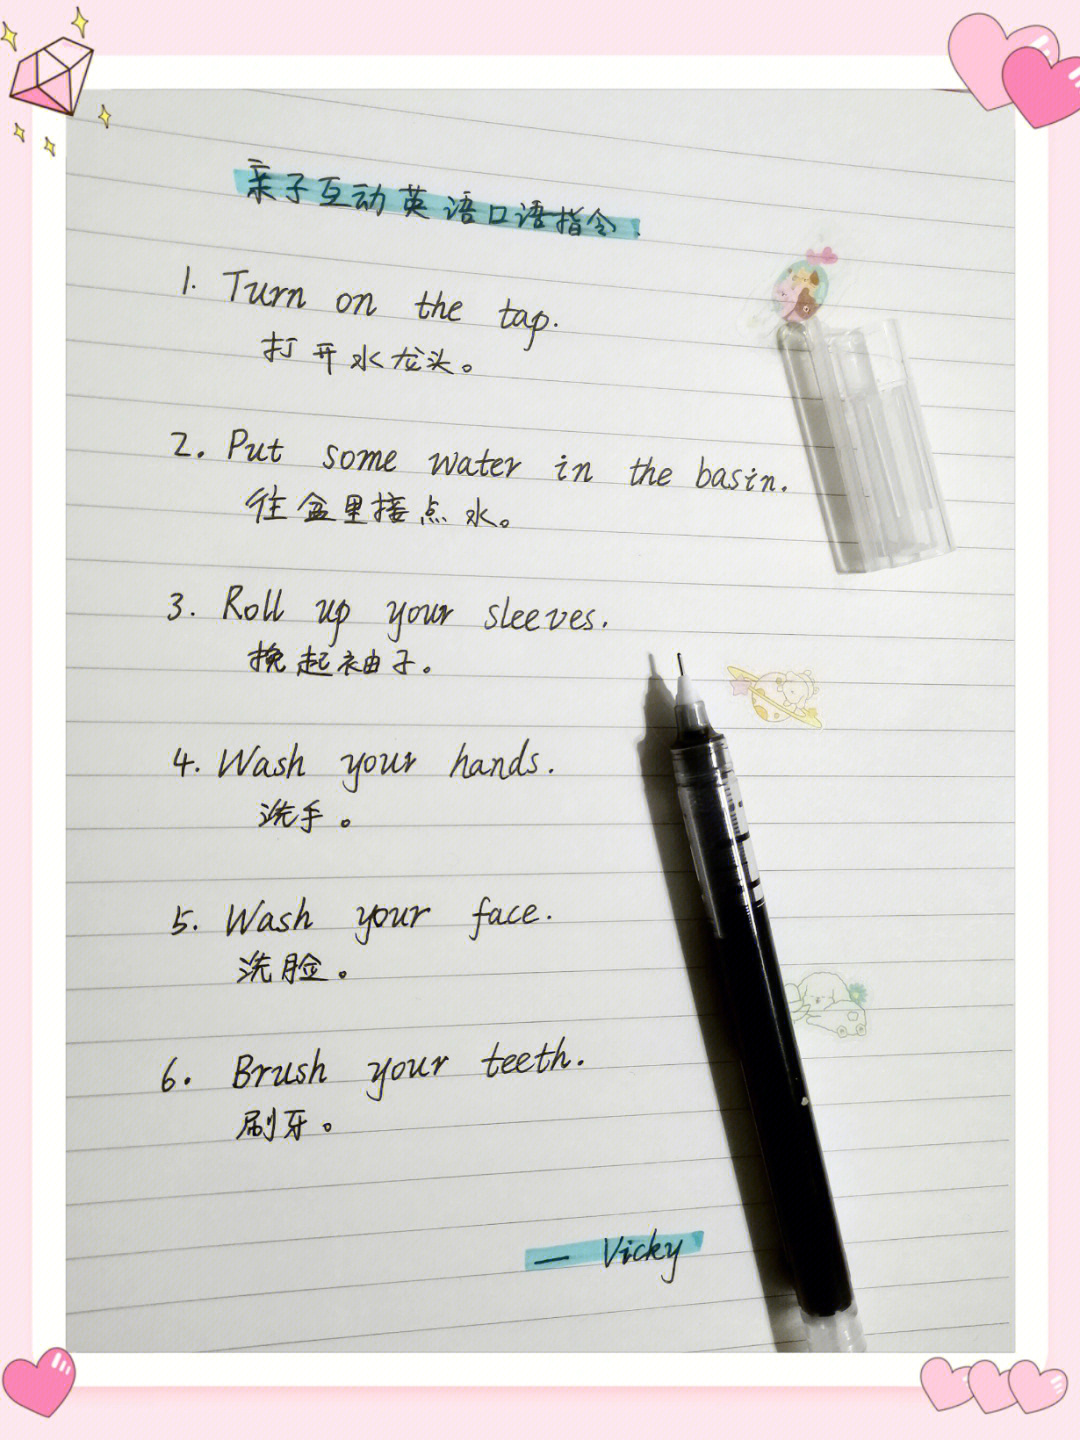 亲子互动英语口语指令.
1. Turn on the tap.
打开水龙头。
2. Put some water in the basin.
往盆里接点水。
3. Roll up your sleeves.
挽起袖子。
4. Wash your hands.
洗手。
5. Wash your face.
洗脸。
6. Brush your teeth.
刷牙。
— Vicky